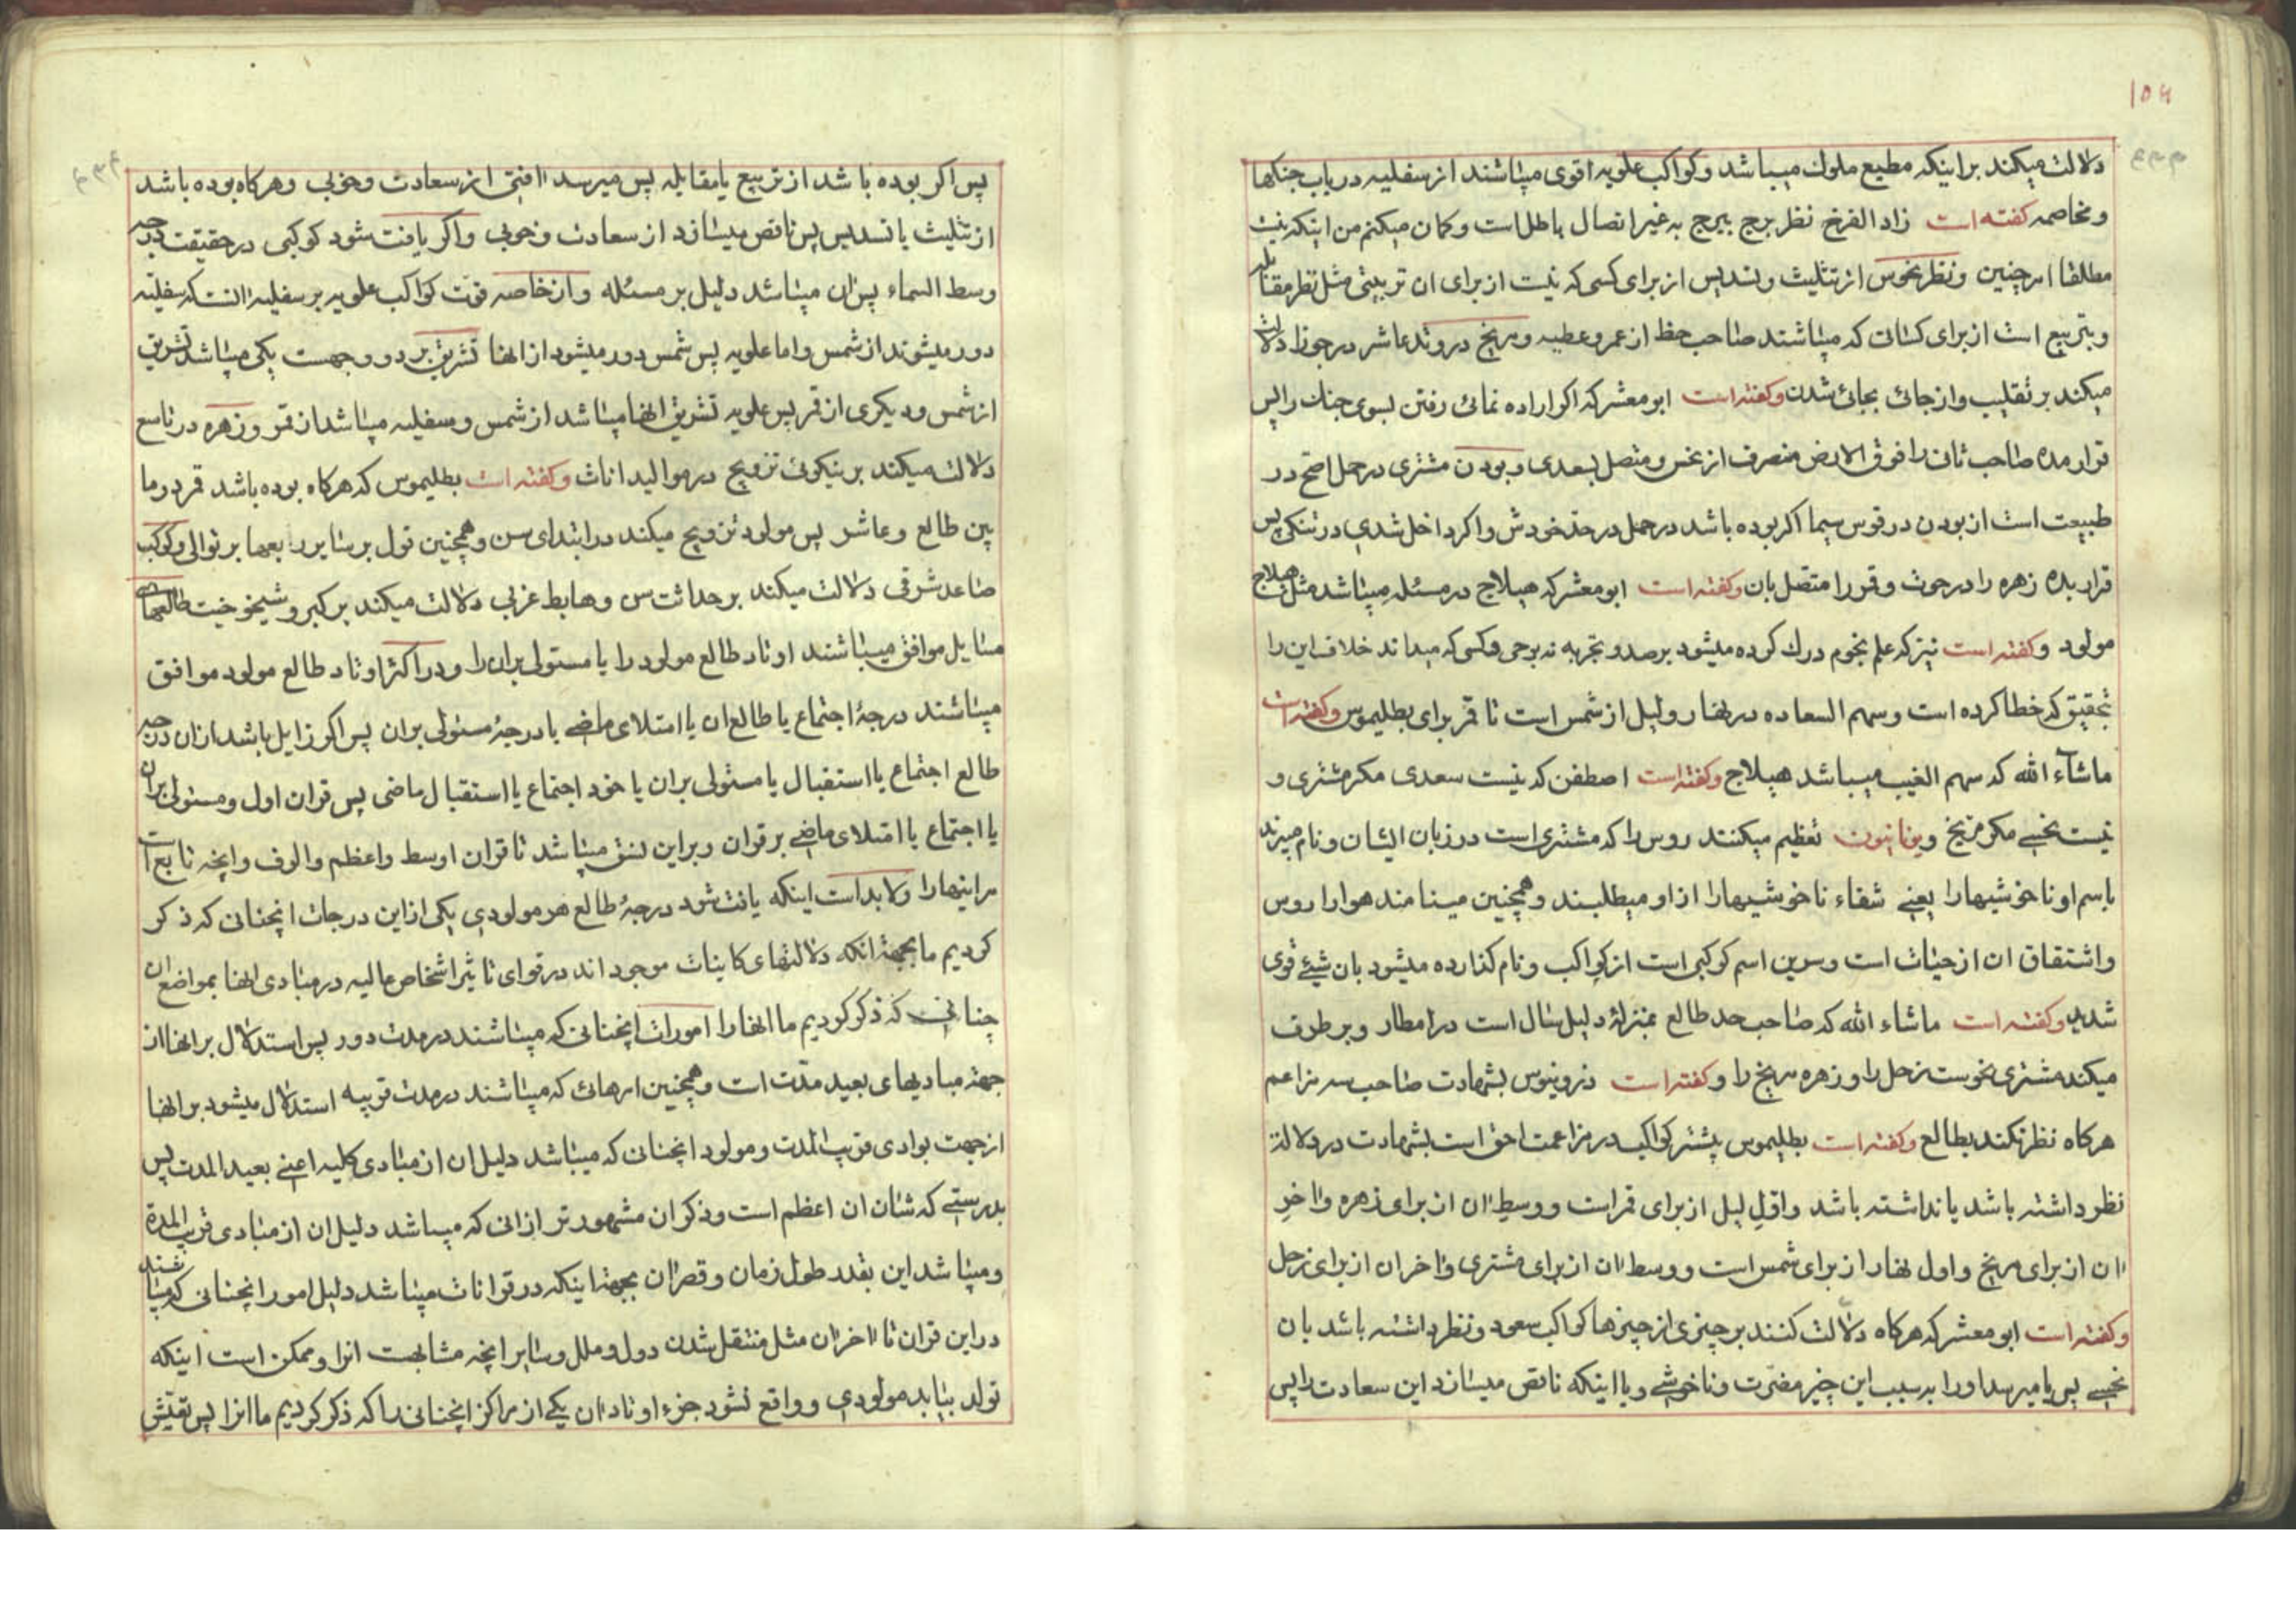 ۱۵۶
دلالت میکند بر اینکه مطیع ملوك میباشد و کواکب علویه اقوی میباشند از سفلیه در باب جنکها
و مخاصمه کفته است زاد الفرخ نظر برج ببرج به غیر اتصال باطل است و کمان میکنم من اینکه نیست
مطلقا امر چنین و نظر نحوس از تثلیث و تسدیس از برای کسی که نیست از برای ان تربیتی مثل نظر مقابله
و تربیع است از برای کسانی که میباشند صاحب حظ از عمر و عطیه و مریخ در وتد عاشر در جوزا دلالت
میکند بر تقلیب و از جائی بجائی شدن و کفته است ابو معشر که اکر اراده نمائی رفتن بسوی جنك را پس
قرار مده صاحب ثانی را فوق الارض منصرف از نحس و متصل بسعدی و بودن مشتری در حمل اصح در
طبیعت است از بودن در قوس سیما اکر بوده باشد در حمل در حد خودش و اکر داخل شدی در تنکی پس
قرار بده زهره را در حوت و قمر را متصل بان و کفته است ابو معشر که هیلاج در مسئله میباشد مثل هیلاج
مولود و کفته است نیز که علم نجوم درك کرده میشود برصد و تجربه نه بوحی و کسی که میداند خلاف این را
تحقیق که خطا کرده است و سهم السعاده در نهار و لیل از شمس است تا قمر برای بطلیموس و کفته است
ماشاء الله که سهم الغیب میباشد هیلاج و کفته است اصطفن که نیست سعدی مکر مشتری و
نیست نحسی مکر مریخ و یونانیون تعظیم میکنند روس را که مشتری است در زبان ایشان و نام میبرند
باسم او ناخوشیها را یعنی شفاء ناخوشیها را از او میطلبند و همچنین مینامند هوا را روس
و اشتقاق ان از حیات است و سرین اسم کوکبی است از کواکب و نام کذارده میشود بان شیئ قوی
شدید و کفته است ماشاء الله که صاحب حد طالع بمنزله دلیل سال است در امطار و بر طرف
میکند مشتری نحوست زحل را و زهره مریخ را و کفته است دزوینوس بشهادت صاحب سه مزاعم
هرکاه نظر نکند بطالع و کفته است بطلیموس بیشتر کواکب در مزاعمت احق است بشهادت در دلالة
نظر داشته باشد یا نداشته باشد و اول لیل از برای قمر است و وسط ان از برای زهره و اخر
ان از برای مریخ و اول نهار از برای شمس است و وسط ان از برای مشتری و اخر ان از برای زحل
و کفته است ابو معشر که هرکاه دلالت کنند بر چیزی از چیزها کواکب سعود و نظر داشته باشد بان
نحسی پس یا میرسد او را بسبب این چیز مضرت و ناخوشی و یا اینکه ناقص میسازد این سعادت را پس
پس اکر بوده باشد از تربیع یا مقابله پس میرسد افتی از سعادت و خوبی و هرکاه بوده باشد
از تثلیث یا تسدیس پس ناقص میسازد از سعادت و خوبی و اکر یافت شود کوکبی در حقیقت درجه
وسط السماء پس ان میباشد دلیل بر مسئله و از خاصه قوت کواکب علویه بر سفلیه انست که سفلیه
دور میشوند از شمس و اما علویه پس شمس دور میشود از انها تشریق بر دو وجهست یکی میباشد تشریق
از شمس و دیکری از قمر پس علویه تشریق انها میباشد از شمس و سفلیه میباشد از قمر و زهره در تاسع
دلالت میکند بر نیکوئی تزویج در موالید اناث و کفته است بطلیموس که هرکاه بوده باشد قمر در ما
بین طالع و عاشر پس مولود تزویج میکند در ابتدای سن و همچنین قول بر سایر ربعها بر توالی و کوکب
صاعد شرقی دلالت میکند بر حداثت سن و هابط غربی دلالت میکند بر کبر و شیخوخیت طالعهای
مسایل موافق میباشند اوتاد طالع مولود را یا مستولی بران را و در اکثر اوتاد طالع مولود موافق
میباشند درجهٔ اجتماع یا طالع ان یا امتلای ماضی یا درجهٔ مستولی بران پس اکر زایل باشد از ان درجه
طالع اجتماع یا استقبال یا مستولی بران یا خود اجتماع یا استقبال ماضی پس قران اول و مستولی بران
یا اجتماع یا امتلای ماضی بر قران و براین نسق میباشد تا قران اوسط و اعظم و الوف و انچه تابع است
مر اینها را و لابد است اینکه یافت شود درجهٔ طالع هر مولودی یکی از این درجات انچنانی که ذکر
کردیم ما بجهة انکه دلالتهای کاینات موجود اند در قوای تاثیر اشخاص عالیه در مبادی انها بمواضع ان
چنانی که ذکر کردیم ما انها را امورات انچنانی که میباشند در مدت دور پس استدلال بر انها از
جهة مبادیهای بعید مدت است و همچنین امرهائی که میباشند در مدت قریبه استدلال میشود بر انها
از جهت بوادی قریب المدت و مولود انچنانی که میباشد دلیل ان از مبادی کلیه اعنی بعید المدت پس
بدرستی که شان ان اعظم است و ذکر ان مشهور تر از انی که میباشد دلیل ان از مبادی قریب المدة
و میباشد این بقدر طول زمان و قصر ان بجهة اینکه در قرانات میباشد دلیل امور انچنانی که میباشند
در این قران تا اخر ان مثل منتقل شدن دول و ملل و سایر انچه مشابهت انرا و ممکن است اینکه
تولد بیابد مولودی و واقع نشود جزء اوتاد ان یکی از مراکز انچنانی را که ذکر کردیم ما انرا پس تفتیش